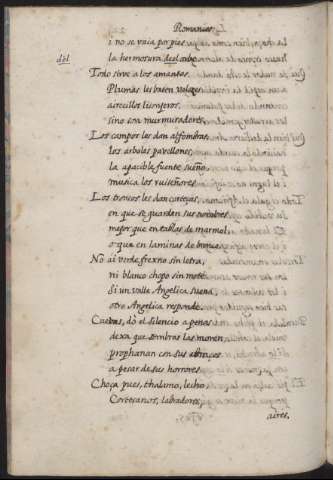 Romances.
i no se vaia por pies
del
la hermosura del orbe.
Todo sirve a los amantes
Plumas les baten veloçes
airecillos lisonjeros,
sino son murmuradores.
Los campos les dan alfombras
los arboles pavellones,
la apacible fuente sueño,
musica los ruiseñores.
Los troncos les dan corteças,
en que se guarden sus nombres
mejor que en tablas de marmol,
o que en laminas de bronce.
No ai verde frexno sin letra,
ni blanco chopo sin mote.
si un valle Angelica suena,
otro Angelica responde.
Cuebas, dò el silencio apenas
dexa que sombras las moren
prophanan con sus abraços
a pesar de sus horrores.
Choça pues, thalamo, lecho,
Cortesanos, labradores,
aires,